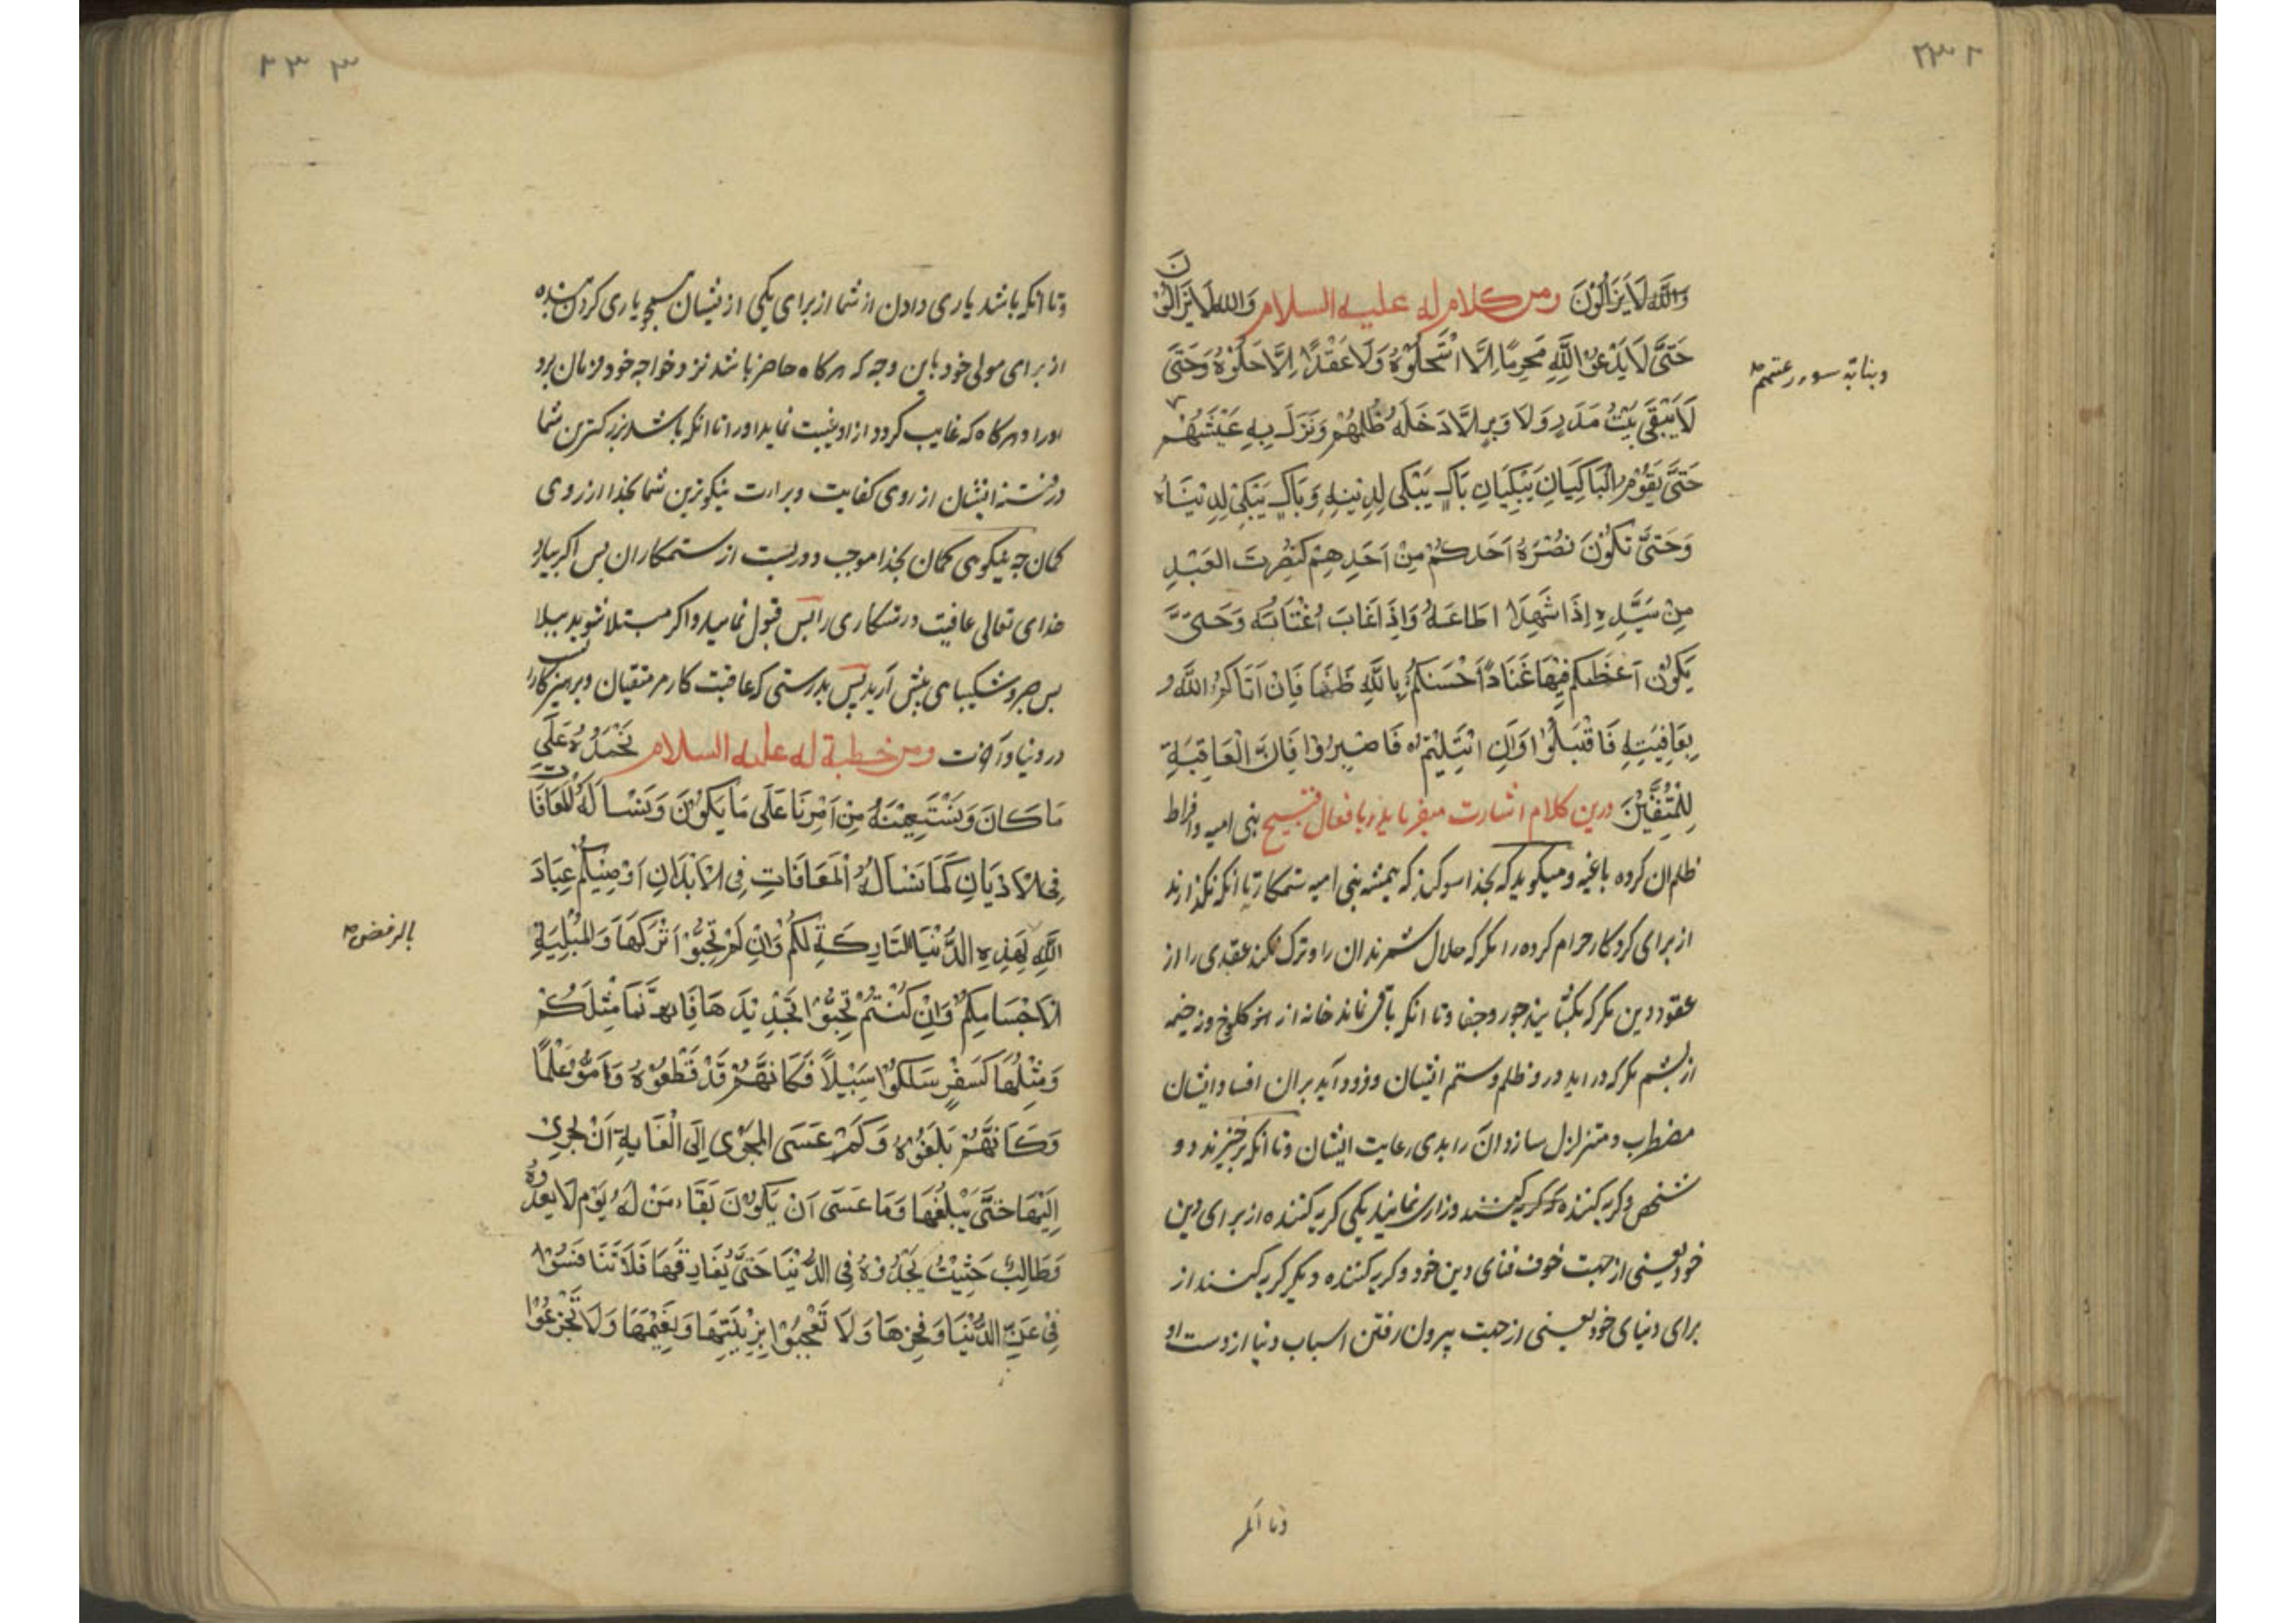 ٢٣٢
وَاللَّهِ لَا يَزَالُونَ ومن كلام له عليه السلام وَاللهِ لَا يَزَالُونَ
حَتَّى لَا يَدَعُوا لِلَّهِ مُحَرَّمًا اِلَّا اسْتَحَلُّوْهُ وَلَا عَقْدًا اِلَّا حَلُّوْهُ وَحَتَّى
لَا يَبْقَى بَيْتُ مَدَرٍ وَلَا وَبَرٍ اِلَّا دَخَلَهُ ظُلْمُهُمْ وَنَزَلَ بِهِ عَيْثُهُمْ
وبنا به سوء رعتهم
حَتَّى يَقُوْمَ الْبَاكِيَانِ يَبْكِيَانِ بَاكٍ يَبْكِى لِدِيْنِهِ وَبَاكٍ يَبْكِىْ لِدُنْيَاهُ
وَحَتَّى تَكُوْنَ نُصْرَةُ اَحَدِكُمْ مِنْ اَحَدِهِمْ كَنُصْرَتِ العَبْدِ
مِنْ سَيِّدِهِ اِذَا شَهِدَ اطَاعَهُ وَاِذَا غَابَ اغْتَابَهُ وَحَتَّى
يَكُوْنَ اَعْظَمُكُمْ فِيْهَا غَنَاءً اَحْسَنُكُمْ بِاللَّهِ ظَنًّا فَاِنْ اَتَاكُمُ اللَّهُ و
بِعَافِيَتِهِ فَاقْبَلُوْا وَاَنِ ابْتُلِيْتُمْ فَاصْبِرُوْا فَاِنَّ الْعَاقِبَةِ
لِلْمُتَّقِيْنَ درين كلام اشارت ميفرمايد بافعال قبيح بنى اميه وافراط
ظلم ان كروه باغيه وميكويد كه بخدا سوكند كه هميشه بنى اميه ستمكارند تا انكه نكذارند
از براى كردكار حرام كرده را مكر كه حلال شمرند ان را وترك نكند عقدى را از
عقود دين مكر كه بكشايند بجور وجفا وتا انكه باقى نماند خانه از كلوخ ونه خيمه
از پشم مكر كه در ايد درو ظلم وستم ايشان وفرود آيد بران افساد ايشان
مضطرب ومتزلزل سازد ان را بدى رعايت ايشان وتا انكه برخيزند دو
شخص كريه كننده كه كريه كنند وزارى نمايند يكى كريه كننده از براى دين
خود يعنى از جهت خوف فناى دين خود وكريه كننده ديكر كريه كند از
براى دنياى خود يعنى از جهت بيرون رفتن اسباب دنيا از دست او
وتا انكه
٢٣٣
وتا انكه باشد يارى دادن از شما از براى يكى از ايشان همچو يارى كردن بنده
از براى مولى خود باين وجه كه هركاه حاضر باشد نزد خواجه خود فرمان برد
اورا وهركاه كه غايب كردد از او غيبت نمايد اورا تا انكه باشد بزركترين شما
در فتنه ايشان از روى كفايت وبراءت نيكوترين شما بخدا از روى
كمان چه نيكويى كمان بخدا موجب دوريست از ستمكاران پس اكر بيارد
خداى تعالى عافيت ورستكارى را پس قبول نماييد واكر مبتلا شويد ببلا
پس صبر وشكيبايى پيش آريد پس بدرستى كه عاقبت كار مر متقيان وپرهيزكارانست
در دنيا وآخرت ومن خطبة له عليه السلام نَحْمَدُهُ عَلَى
مَا كَانَ وَنَسْتَعِيْنُهُ مِنْ اَمْرِنَا عَلَى مَا يَكُوْنُ وَنَسْأَلُهُ الْمُعَافَاتَ
فِى الْاَدْيَانِ كَمَا نَسْأَلُهُ الْمُعَافَاتِ فِى الْاَبْدَانِ اُوْصِيْكُمْ عِبَادَ
اللَّهِ بِهَذِهِ الدُّنْيَا التَّارِكَةِ لَكُمْ وَاِنْ لَمْ تُحِبُّوْا تَرْكَهَا وَالْمُبْلِيَةِ
بالرفض
لِاَجْسَامِكُمْ وَاِنْ كُنْتُمْ تُحِبُّوْا تَجْدِيْدَهَا فَاِنَّمَا مَثَلُكُمْ
وَمَثَلُهَا كَسَفْرٍ سَلَكُوْا سَبِيْلًا فَكَاَنَّهُمْ قَدْ قَطَعُوْهُ وَاَمُّوْا عَلَمًا
وَكَاَنَّهُمْ بَلَغُوْهُ وَكَمْ عَسَى الْمُجْرِى اِلَى الْغَايَةِ اَنْ يَجْرِىَ
اِلَيْهَا حَتَّى يَبْلُغَهَا وَمَا عَسَى اَنْ يَكُوْنَ بَقَاءُ مَنْ لَهُ يَوْمٌ لَا يَعْدُوهُ
وَطَالِبٌ حَثِيْثٌ يَحْدُوْهُ فِى الدُّنْيَا حَتَّى يُفَارِقَهَا فَلَا تَنَافَسُوْا
فِىْ عِزِّ الدُّنْيَا وَفَخْرِهَا وَلَا تَعْجَبُوْا بِزِيْنَتِهَا وَنَعِيْمِهَا وَلَا تَجْزَعُوْا